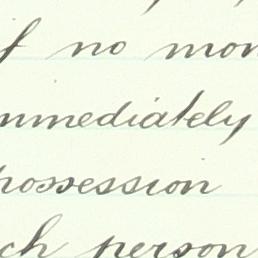 if no mon
immediately
possession
ch person